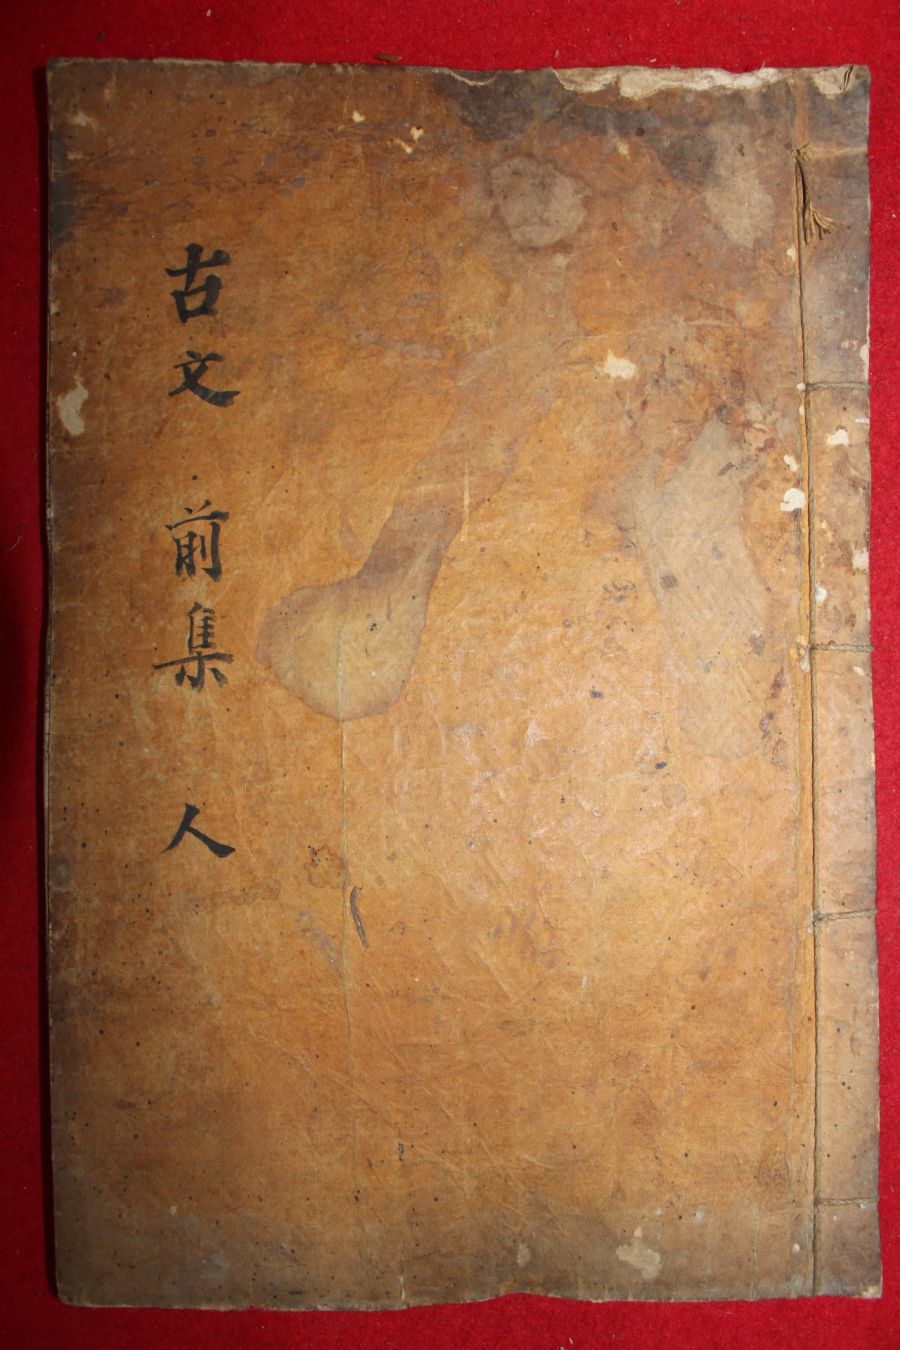 古文 前集 人